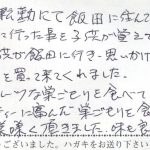 転勤にて飯田に住んで
に行った事を子供が覚えて
供が飯田に行き思いかけ
を買って来てくれました。
レーツな巣ごもりを食べて
ティーに富んだ巣ごもりを食
美味く頂きました。味も食
ございました。ハガキをお送り下さい